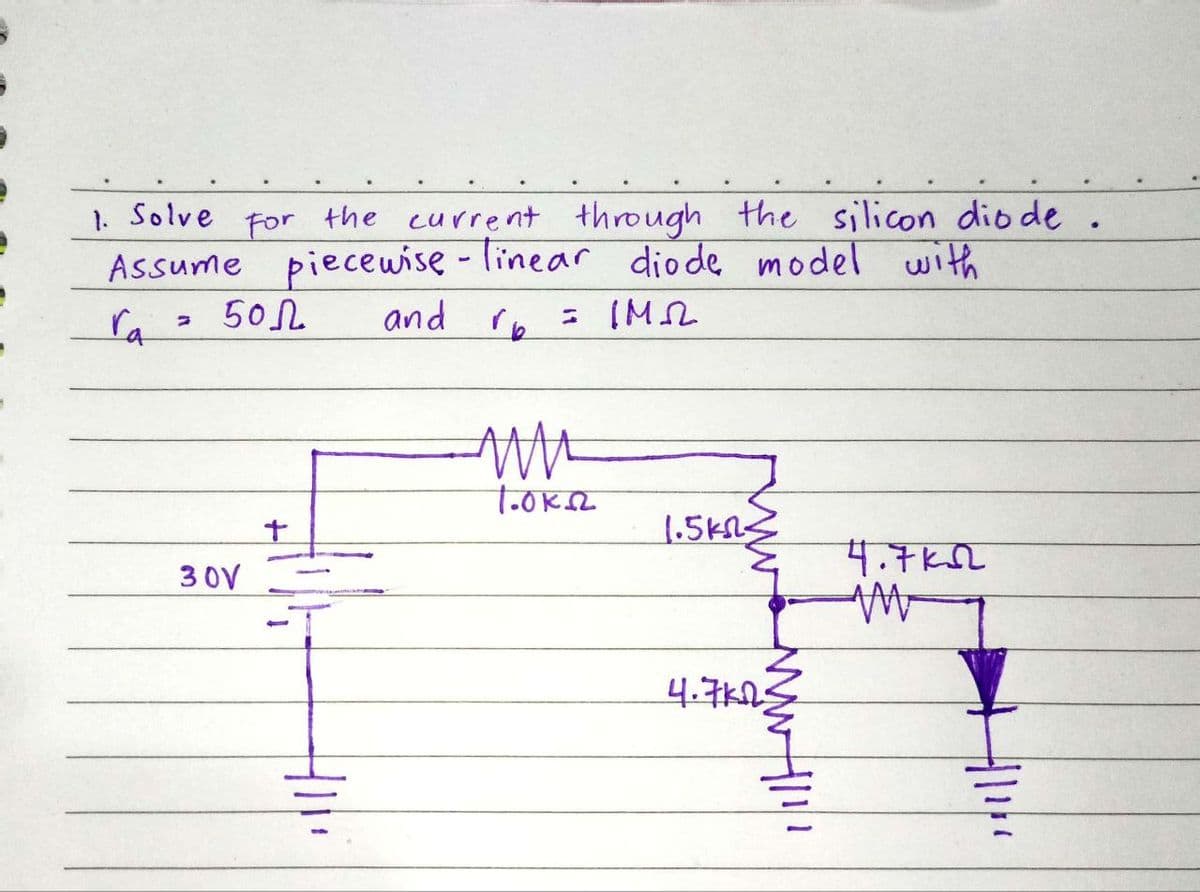 1. Solve for the current through the silicon diode.
Assume piecewise-linear diode model with
ra = 50Ω and rb = 1MΩ
1.0KΩ
+
1.5kΩ
4.7kΩ
30V
-
4.7kΩ